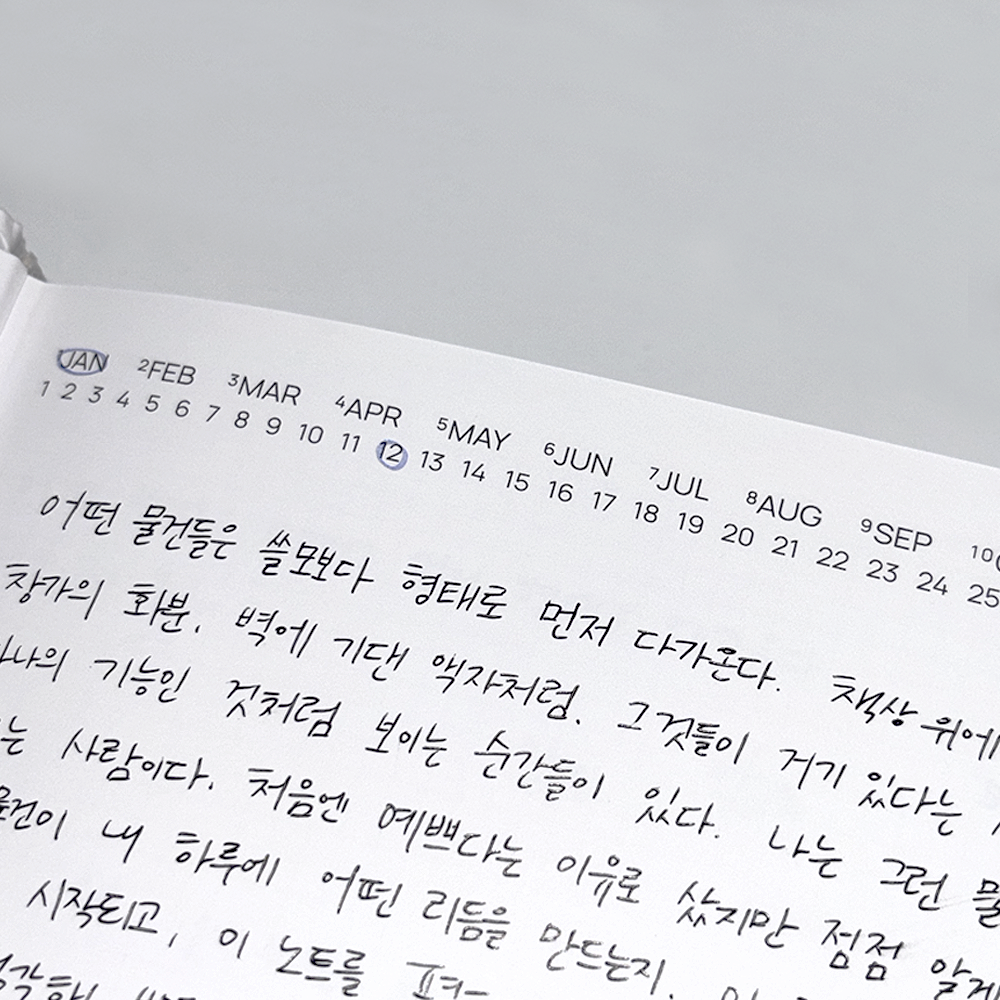 1JAN 2FEB 3MAR 4APR 5MAY 6JUN 7JUL 8AUG 9SEP 10
1 2 3 4 5 6 7 8 9 10 11 12 13 14 15 16 17 18 19 20 21 22 23 24 25
어떤 물건들은 쓸모보다 형태로 먼저 다가온다. 책상 위에
창가의 화분, 벽에 기댄 액자처럼. 그것들이 거기 있다는
하나의 기능인 것처럼 보이는 순간들이 있다. 나는 그런
는 사람이다. 처음엔 예쁘다는 이유로 샀지만 점점 알게
물건이 내 하루에 어떤 리듬을 만드는지.
시작되고, 이 노트를